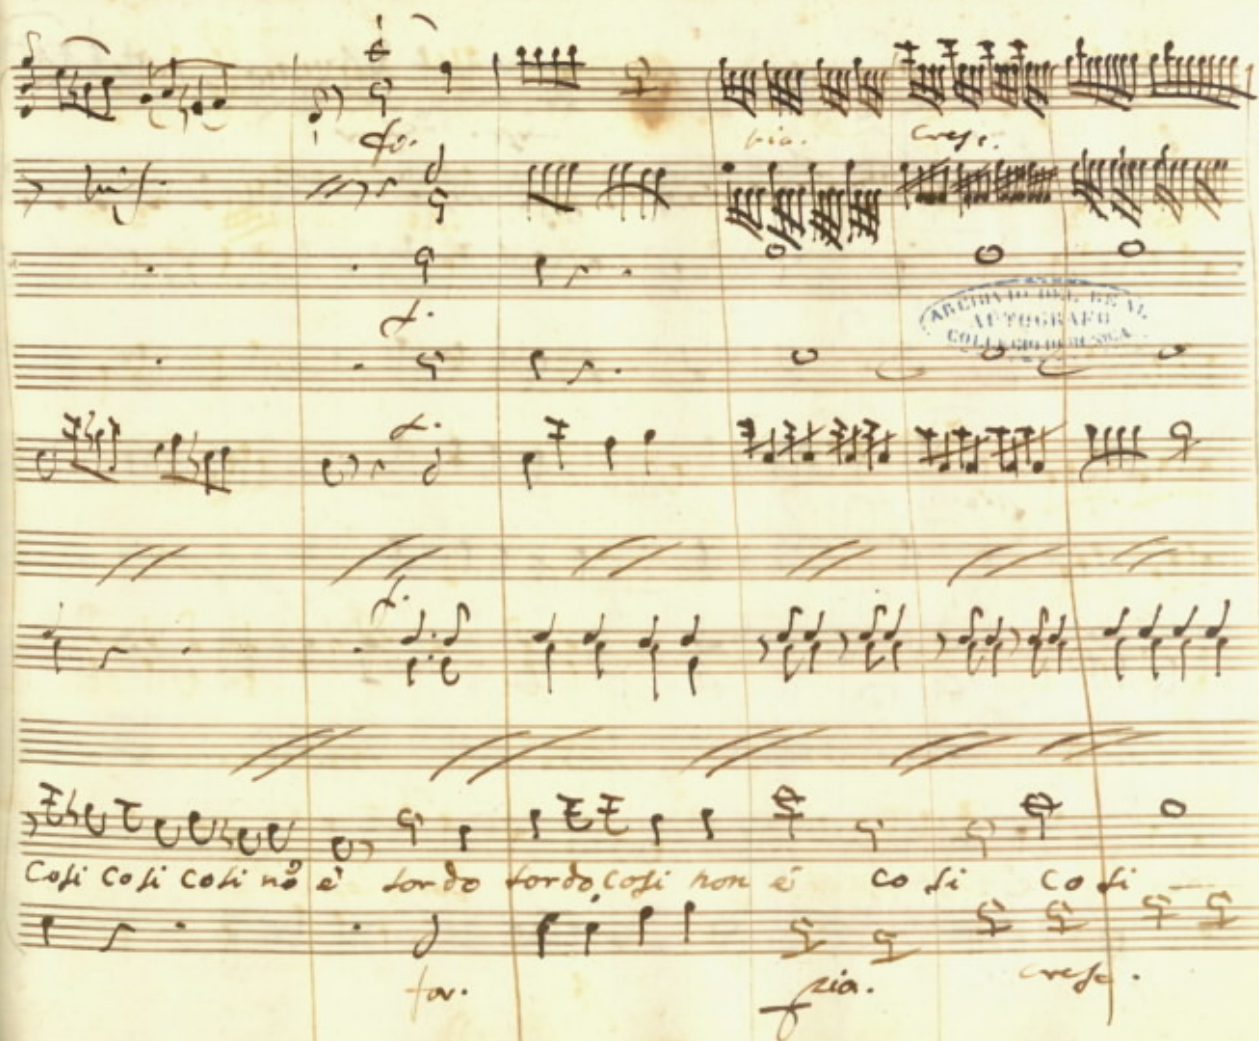 fo.
pia. Cresc.
f.
ARCHIVIO DEL REAL
AUTOGRAFO
COLLEGIO DI MUSICA
f.
f.
Cosi Cosi Cosi nõ è sordo sordo, Cosi non è co si co si
for. pia. cresc.